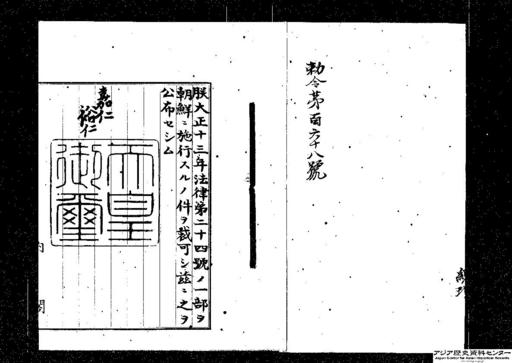 勅令第百六十八號
朕大正十三年法律第二十四號ノ一部ヲ
朝鮮ニ施行スルノ件ヲ裁可シ茲ニ之ヲ
公布セシム
嘉仁
裕仁
天皇
御璽
内閣
アジア歴史資料センター
Japan Center for Asian Historical Records